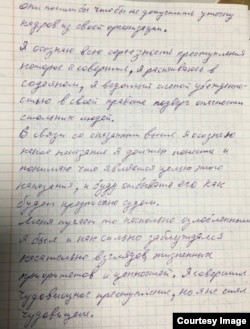 они пошли бы чтобы не допустить утечку
кадров из своей организации.
Я осознаю всю серьезность преступления
которое я совершил, я раскаиваюсь в
содеянном, я ведомый слепой убежденно-
стью в своей правоте подверг опасности
стольких людей.
В связи со сказанным выше я осознаю
какое наказание я должен понести и
понимаю что является целью этого
наказания, и буду отбывать его как
будет предписано судом.
Меня пугает то насколько озлобленным
я был и как сильно заблуждался
касательно взглядов жизненных
приоритетов и ценностей. Я совершил
чудовищное преступление, но я не
чудовище.
Courtesy Image